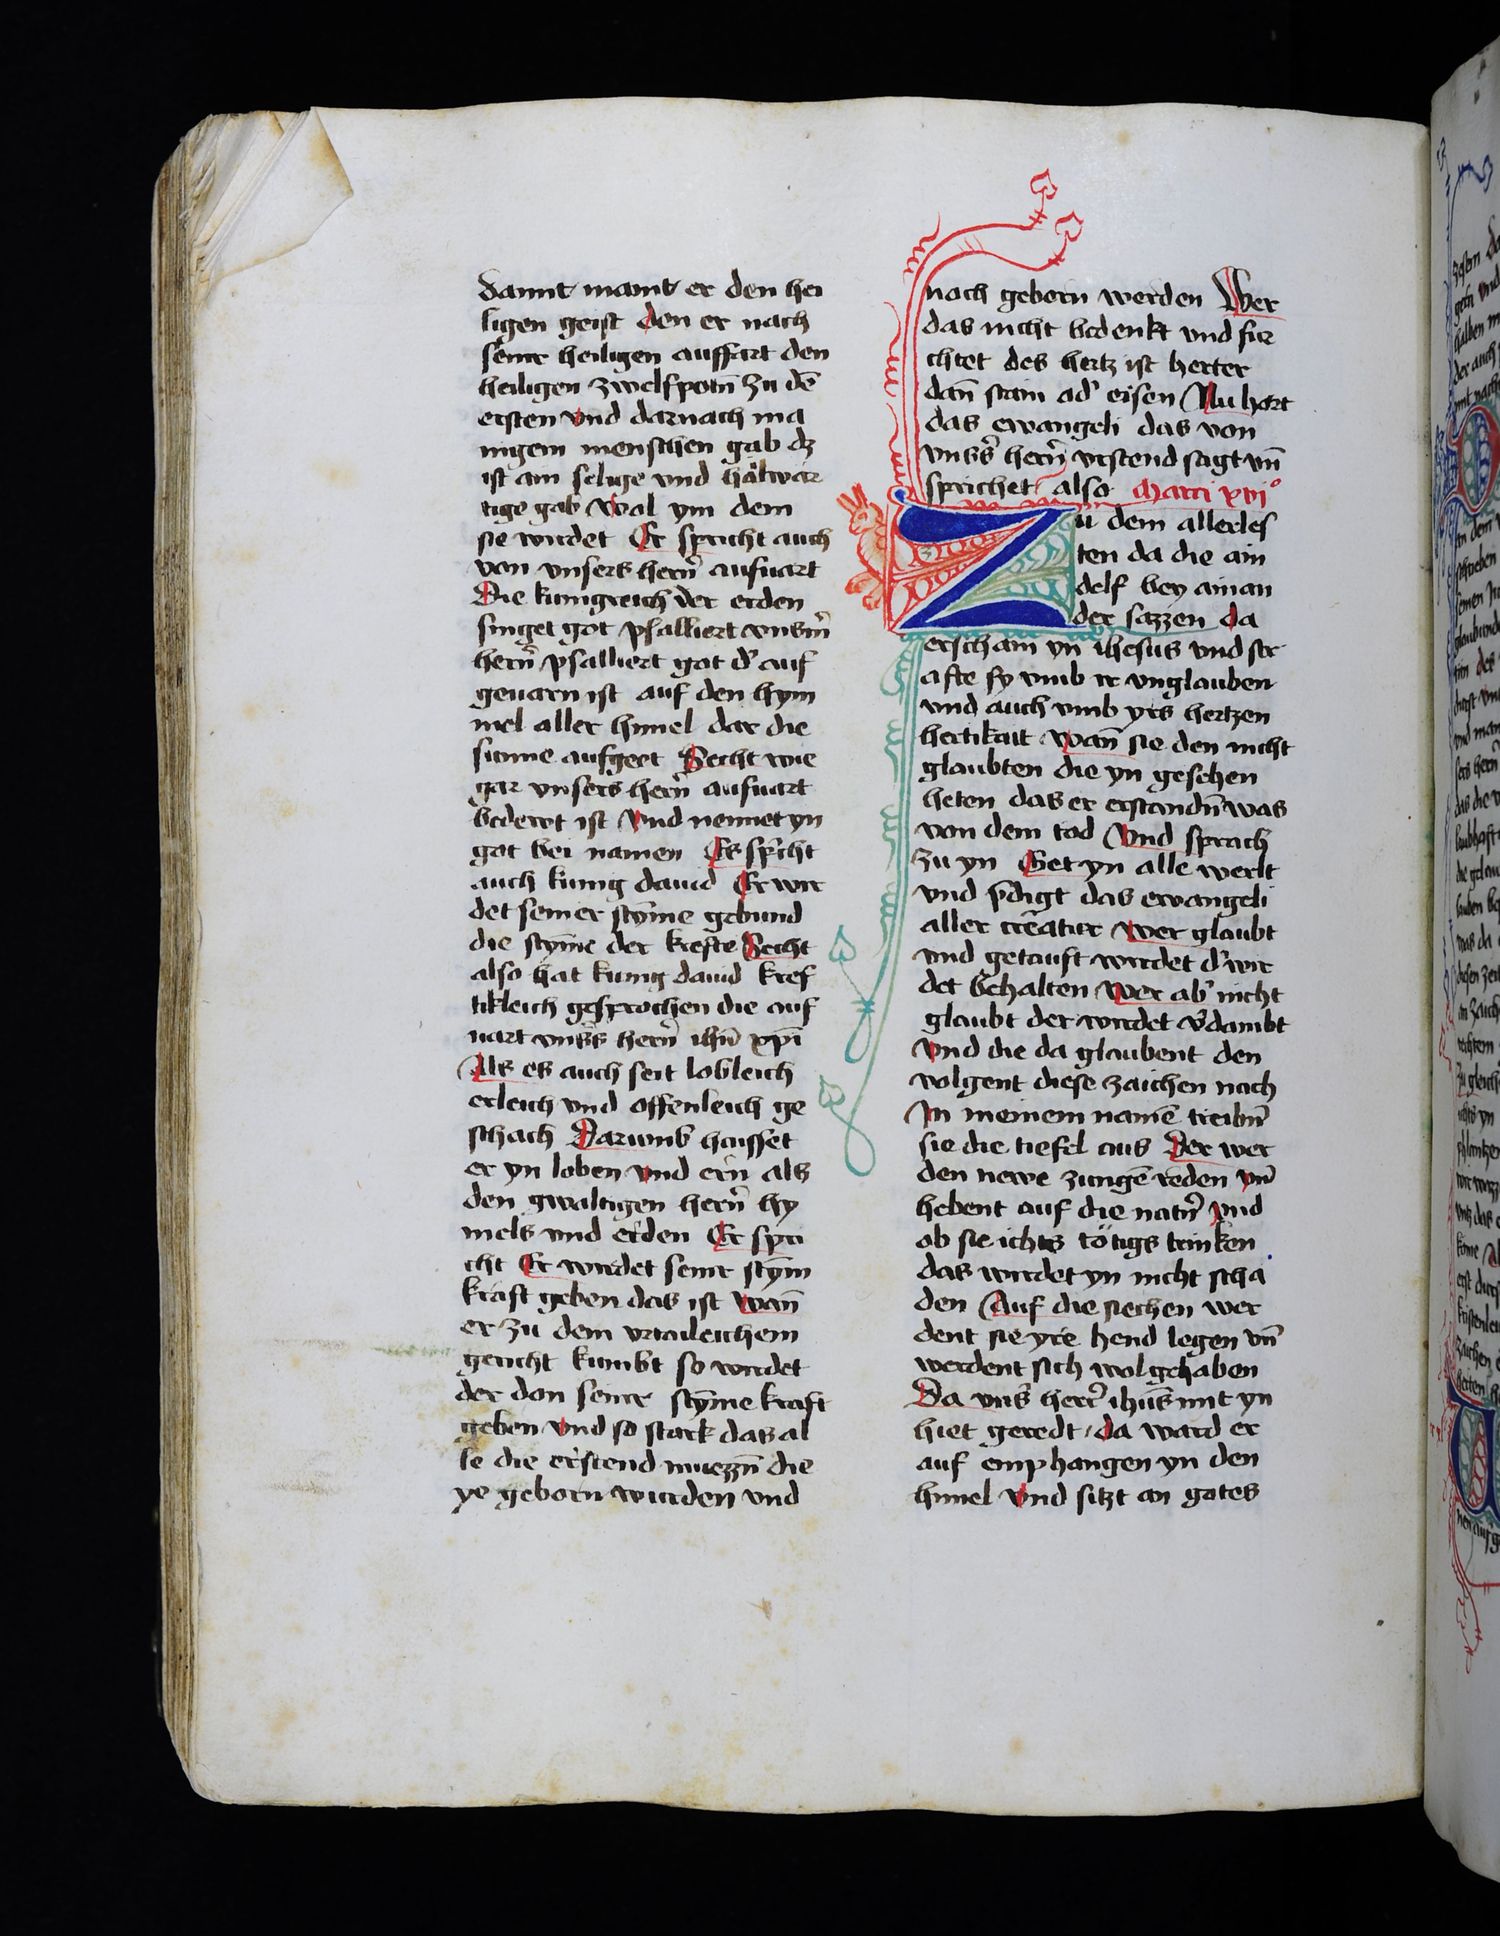 damit maint er den hei
ligen geist den er nach
seiner heiligen auffart den
heiligen zwelfpotn̄ zu dē
ersten vnd darnach ma
nigem menschen gab dz
ist ain selige vnd hailwar
tige gab Wol ym dem
sie wirdet Er spricht auch
von vnsers hern̄ aufuart
Die kunigreich der erden
singet got psalliert vnserm̄
hern̄ psalliert got d' auf
geuarn ist auf den hym
mel aller himel dar die
sunne aufgeet Secht wie
gar vnsers hern̄ aufuart
bedewt ist Vnd nennet yn
got bei namen Es sp̄cht
auch kunig dauid Er wir
det seiner stȳme gebund
die stȳme der krefte Secht
also hat kunig dauid kref
tikleich gesprochen die auf
uart vnsers hern̄ ihū xp̄i
Als es auch seit lobleich
erleich vnd offenleich ge
schach Darumb haisset
er yn loben vnd ern als
den gwaltigen hern̄ hy
mels vnd erden Er spri
cht Er wirdet seiner stȳm
kraft geben das ist wan̄
er zu dem vrtaileichem
gericht kumbt so wirdet
der don seiner stȳme kraft
geben vnd so stark das al
le die erstend muezzn̄ die
ye geborn wurden vnd
noch geborn werden Wer
das nicht bedenkt vnd fur
chtet des hertz ist herter
dan̄ stain ad' eisen Nu hort
das ewangeli das von
vnsers hern̄ vrstend sagt vn̄
sprichet also Marci xvi°
Zu dem allerles
ten da die ain
delf bey ainan
der sazzen da
erscham yn ihesus vnd str
afte sy vmb ir vnglauben
vnd auch vmb yrs hertzen
hertikait wan̄ sie den nicht
glaubten die yn gesehen
heten das er erstandn̄ was
von dem tod Vnd sprach
zu yn Get yn alle werlt
vnd p̄digt das ewangeli
aller creatur wer glaubt
vnd getauft wirdet d' wir
det behalten wer ab' nicht
glaubt der wirdet v'dambt
Vnd die da glaubent den
volgent diese zaichen nach
In meinem namē treibn̄
sie die tiefel aus Der wer
den newe zungē reden vn̄
hebent auf die natn̄ vnd
ob sie ichts tötigs trinken
das wirdet yn nicht scha
den Auf die siechen wer
dent sie yre hend legen vn̄
werdent sich wol gehaben
Da vns' herr' ihūs mit yn
hiet geredt da ward er
auf emphangen yn den
himel vnd sitzt an gotes